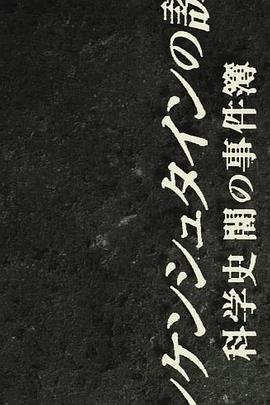 ンケンシュタインの
科学史 闇の事件簿